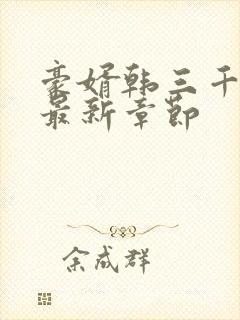 豪婿韩三千
最新章节
余成群